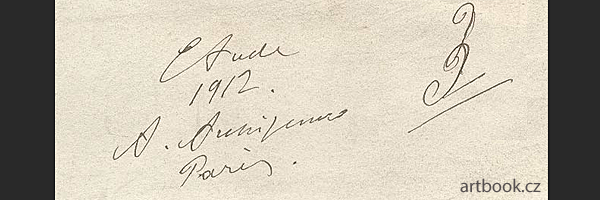 Etude
1912.
A. Archipenko
Paris.
3
artbook.cz